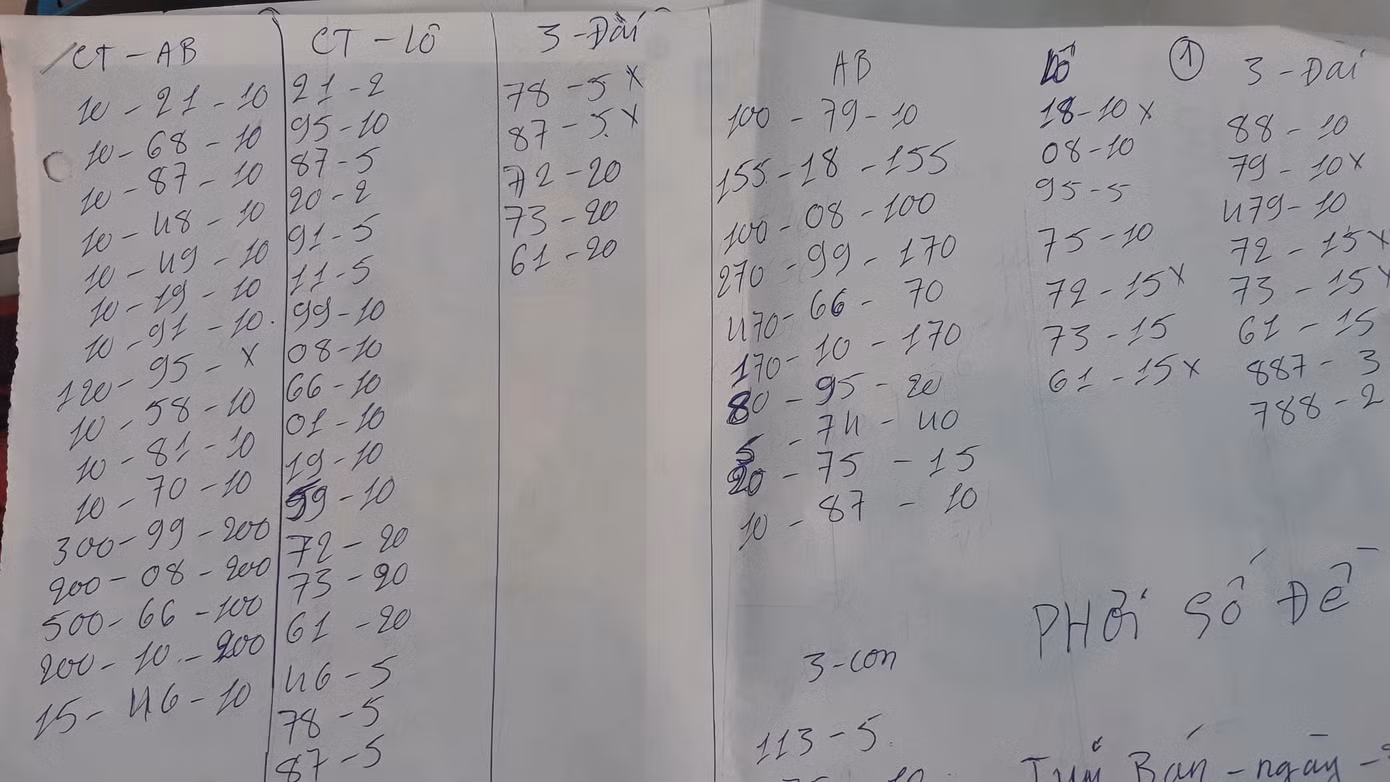 CT - AB
10 - 21 - 10
10 - 68 - 10
10 - 87 - 10
10 - 48 - 10
10 - 49 - 10
10 - 19 - 10
10 - 91 - 10.
120 - 95 - x
10 - 58 - 10
10 - 81 - 10
10 - 70 - 10
300 - 99 - 200
200 - 08 - 200
500 - 66 - 100
200 - 10 - 200
15 - 46 - 10
CT - Lô
21 - 2
95 - 10
87 - 5
20 - 2
91 - 5
11 - 5
99 - 10
08 - 10
66 - 10
01 - 10
19 - 10
59 - 10
72 - 20
73 - 20
61 - 20
46 - 5
78 - 5
87 - 5
3 - Đài
78 - 5 x
87 - 5. x
72 - 20
73 - 20
61 - 20
AB
100 - 79 - 10
155 - 18 - 155
100 - 08 - 100
270 - 99 - 170
470 - 66 - 70
170 - 10 - 170
80 - 95 - 20
5 - 74 - 40
20 - 75 - 15
10 - 87 - 10
Lô
18 - 10 x
08 - 10
95 - 5
75 - 10
72 - 15 x
73 - 15
61 - 15 x
1
3 - Đài
88 - 10
79 - 10 x
479 - 10
72 - 15 x
73 - 15 x
61 - 15
887 - 3
788 - 2
PHƠI SỐ ĐỀ
3 - con
113 - 5.
Bán - ngày -